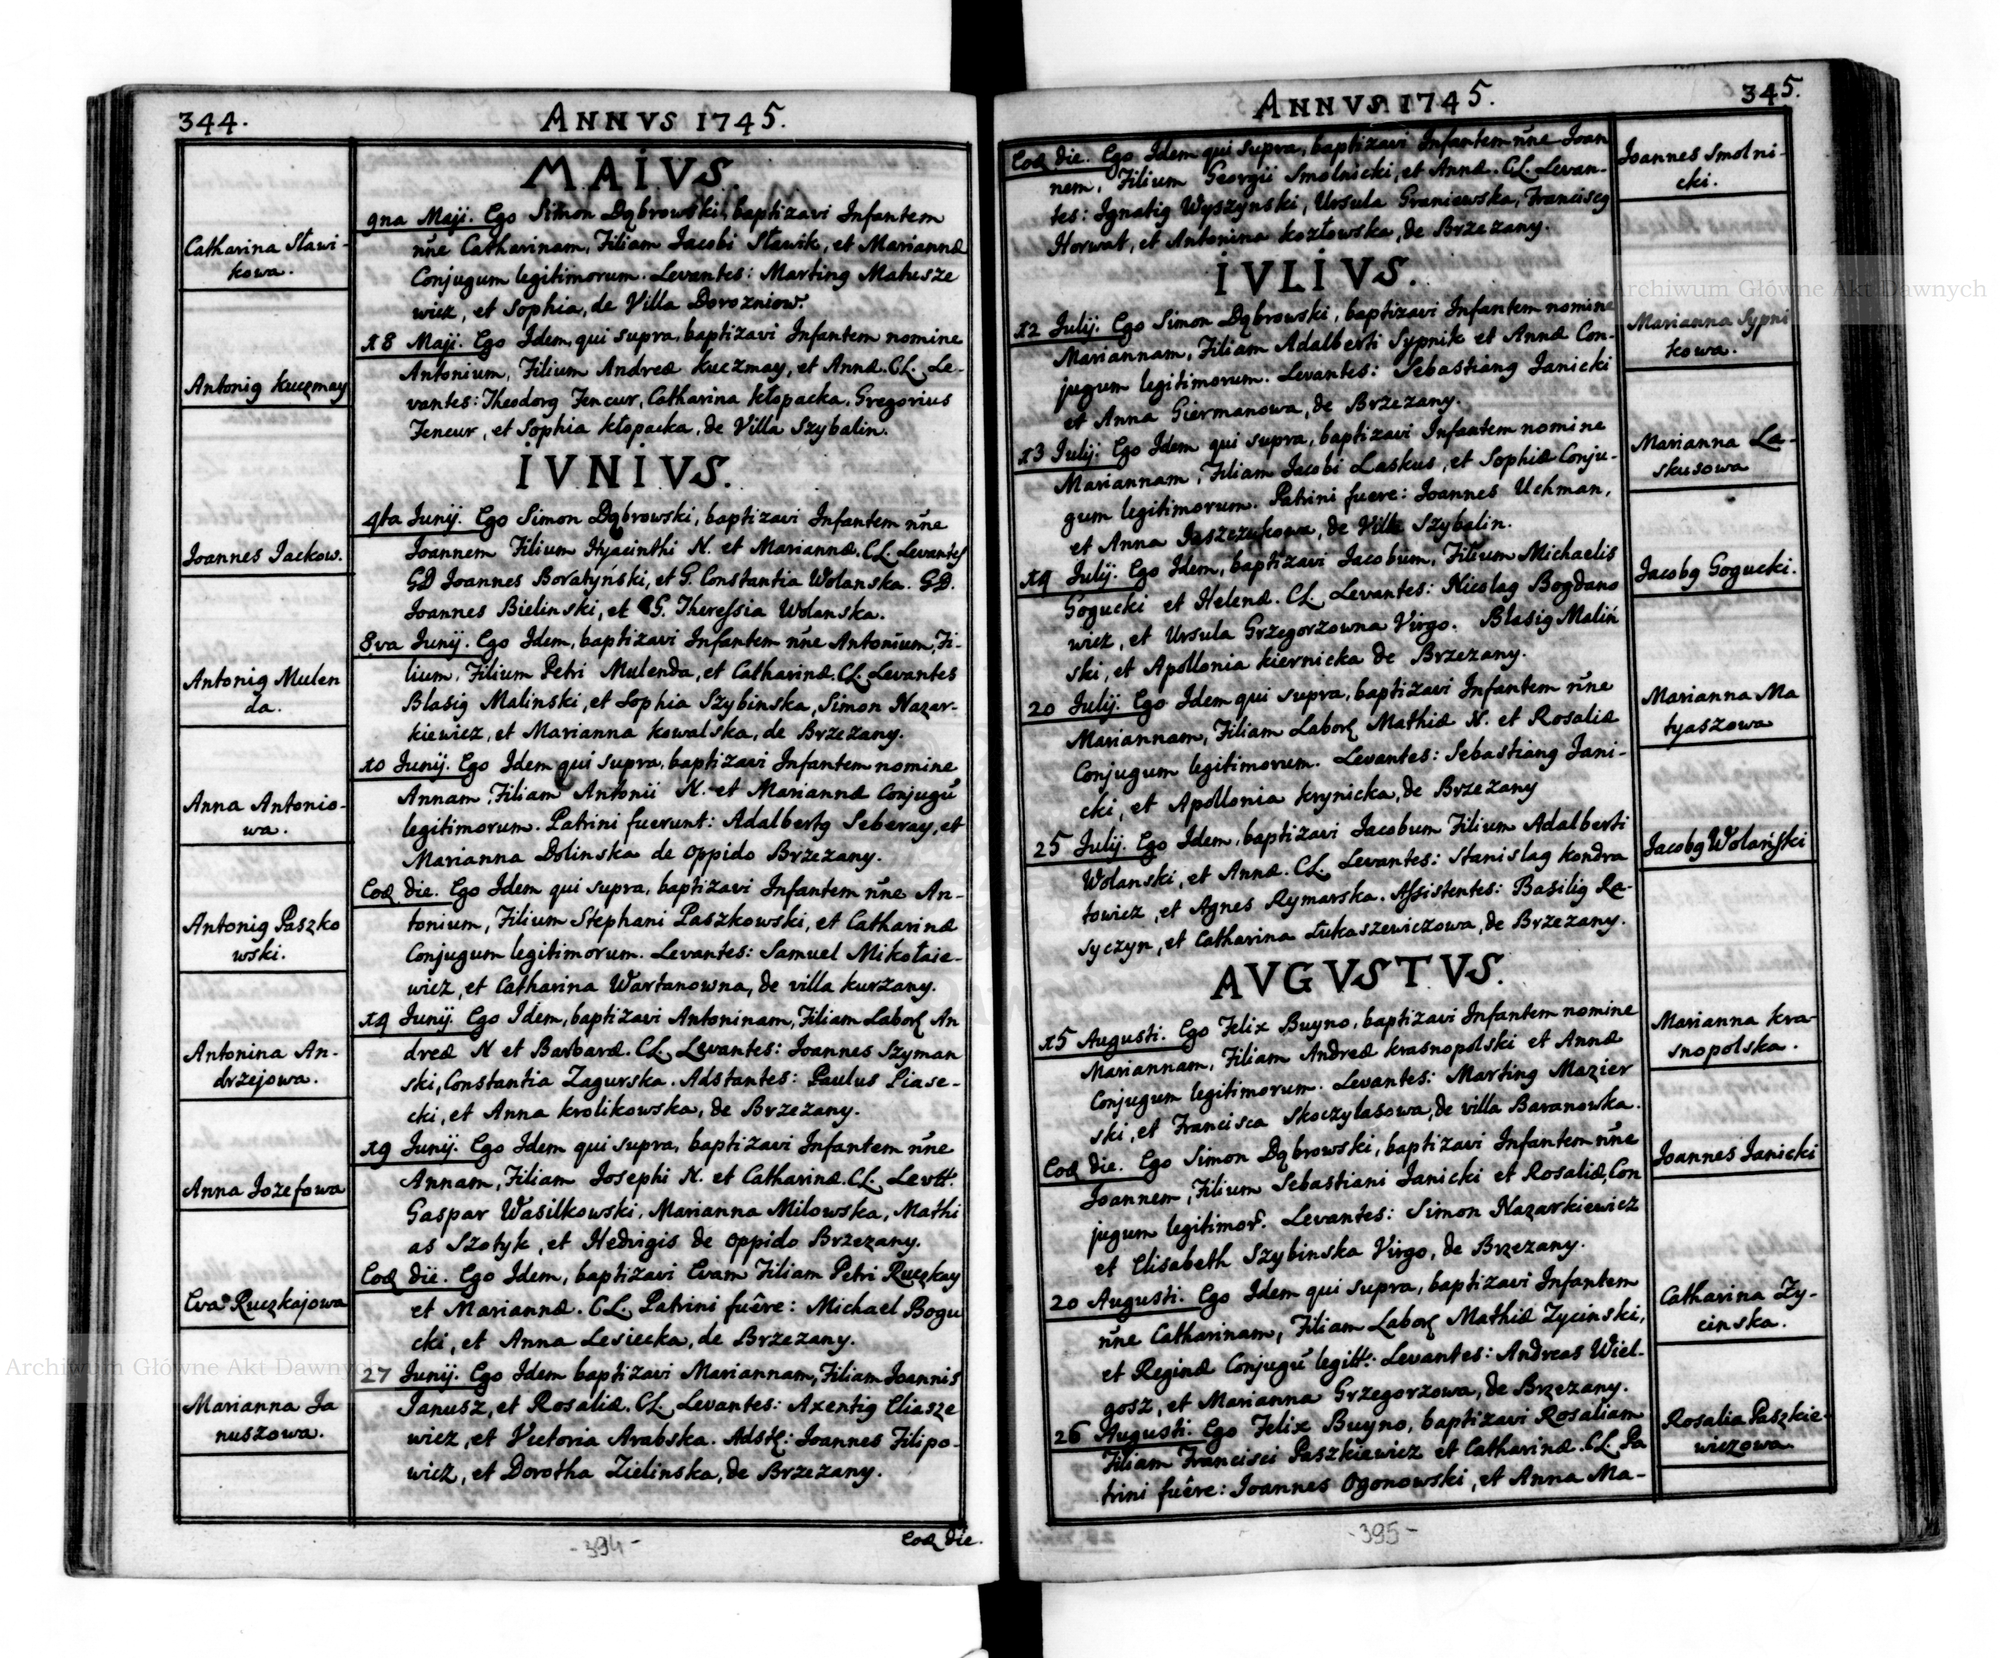 344.
ANNVS 1745.
MAIVS
Catharina Stawi-
kowa.
9na Maji. Ego Simon Dąbrowski, baptizavi Infantem
nñe Catharinam, Filiam Jacobi Stawik, et Mariannæ
Conjugum legitimorum. Levantes: Marting Matusze
wicz, et Sophia, de Villa Dorozniow.
Antonig Kuczmay
18 Maji. Ego Idem, qui supra, baptizavi Infantem nomine
Antonium, Filium Andreæ Kuczmay, et Annæ. CL. Le-
vantes: Theodorg Fencur, Catharina Kłopacka. Gregorius
Fencur, et Sophia Kłopacka, de Villa Szybalin.
IVNIVS.
Joannes Jackow.
4ta Junij. Ego Simon Dąbrowski, baptizavi Infantem nñe
Joannem Filium Hyacinthi N. et Mariannæ. CL. Levantes
GD Joannes Boratyński, et G. Constantia Wolanska. GD.
Joannes Bielinski, et G. Theressia Wolanska.
Antonig Mulen
da.
8va Junij. Ego Idem, baptizavi Infantem nñe Antonium, Fi-
lium, Filium Petri Mulenda, et Catharinæ. CL. Levantes
Blasig Malinski, et Sophia Szybinska, Simon Nazar-
kiewicz, et Marianna Kowalska, de Brzezany.
Anna Antonio-
wa.
10 Junij. Ego Idem qui supra, baptizavi Infantem nomine
Annam, Filiam Antonii N. et Mariannæ Conjugũ
legitimorum. Patrini fuerunt: Adalbertg Seberay, et
Marianna Dolinska de oppido Brzezany.
Antonig Paszko
wski.
Eoq die. Ego Idem qui supra, baptizavi Infantem nñe An-
tonium, Filium Stephani Paszkowski, et Catharinæ
Conjugum legitimorum. Levantes: Samuel Mikołaie-
wicz, et Catharina Wartanowna, de villa Kurzany.
Antonina An-
drzejowa.
14 Junij. Ego Idem, baptizavi Antoninam, Filiam Labor An
dreæ N et Barbaræ. CL. Levantes: Joannes Szyman
ski, Constantia Zagurska. Adstantes: Paulus Piase-
cki, et Anna Krolikowska, de Brzezany.
Anna Jozefowa
19 Junij. Ego Idem qui supra, baptizavi Infantem nñe
Annam, Filiam Josephi N. et Catharinæ. CL. Levtt:
Gaspar Wasilkowski, Marianna Milowska, Mathi
as Szotyk, et Hedvigis de oppido Brzezany.
Eva Ruczkajowa
Eoq die. Ego Idem, baptizavi Evam Filiam Petri Ruczkay
et Mariannæ. CL. Patrini fuêre: Michael Bogu
cki, et Anna Lesiecka, de Brzezany.
Marianna Ja
nuszowa.
27 Junij. Ego Idem baptizavi Mariannam, Filiam Joannis
Janusz, et Rosaliæ. CL. Levantes: Axentig Eliasze
wicz, et Victoria Arabska. Adst: Joannes Filipo-
wicz, et Dorotha Zielinska, de Brzezany.
Eoq die.
-394-
ANNVS 1745.
345.
Eoq die. Ego Idem qui supra, baptizavi Infantem nñe Joan
nem, Filium Georgii Smolnicki, et Annæ. CL. Levan-
tes: Ignatig Wyszynski, Ursula Graniewska, Franciscg
Horwat, et Antonina Kozłowska, de Brzezany.
Joannes Smolni-
cki.
IVLIVS.
12 Julij. Ego Simon Dąbrowski, baptizavi Infantem nomine
Mariannam, Filiam Adalberti Sypnik et Annæ Con-
jugum legitimorum. Levantes: Sebastiang Janicki
et Anna Giermanowa, de Brzezany.
Marianna Sypni
kowa.
13 Julij. Ego Idem qui supra, baptizavi Infantem nomine
Mariannam, Filiam Jacobi Laskus, et Sophiæ Conju-
gum legitimorum. Patrini fuere: Joannes Uchman,
et Anna Jaszczukowa, de Villa Szybalin.
Marianna La-
skusowa
19 Julij. Ego Idem, baptizavi Jacobum, Filium Michaelis
Gogucki et Helenæ. CL. Levantes: Nicolag Bogdano
wicz, et Ursula Grzegorzowna Virgo. Blasig Maliń
ski, et Apollonia Kiernicka de Brzezany.
Jacobg Gogucki.
20 Julij. Ego Idem qui supra, baptizavi Infantem nñe
Mariannam, Filiam Labor Mathiæ N. et Rosaliæ
Conjugum legitimorum. Levantes: Sebastiang Jani-
cki, et Apollonia Krynicka, de Brzezany
Marianna Ma
tyaszowa
25 Julij. Ego Idem, baptizavi Jacobum Filium Adalberti
Wolanski, et Annæ. CL. Levantes: Stanislag Kondra
towicz, et Agnes Rymarska. Assistentes: Basilig Ra-
syczyn, et Catharina Łukaszewiczowa, de Brzezany.
Jacobg Wolański
AVGVSTVS.
15 Augusti. Ego Felix Buyno, baptizavi Infantem nomine
Mariannam, Filiam Andreæ Krasnopolski et Annæ
Conjugum legitimorum. Levantes: Marting Mazier
ski, et Francisca Skoczylasowa, de villa Baranowka.
Marianna Kra-
snopolska.
Eoq die. Ego Simon Dąbrowski, baptizavi Infantem nñe
Joannem, Filium Sebastiani Janicki et Rosaliæ, Con
jugum legitimor. Levantes: Simon Nazarkiewicz
et Elisabeth Szybinska Virgo, de Brzezany.
Joannes Janicki
20 Augusti. Ego Idem qui supra, baptizavi Infantem
nñe Catharinam, Filiam Labor Mathiæ Zycinski,
et Reginæ Conjugũ legitt: Levantes: Andreas Wiel-
gosz, et Marianna Grzegorzowa, de Brzezany.
Catharina Zy-
cinska.
26 Augusti. Ego Felix Buyno, baptizavi Rosaliam
Filiam Francisci Paszkiewicz et Catharinæ. CL. Pa
trini fuêre: Joannes Ogonowski, et Anna Ma-
Rosalia Paszkie-
wiczowa.
-395-
Archiwum Główne Akt Dawnych
Archiwum Główne Akt Dawnych